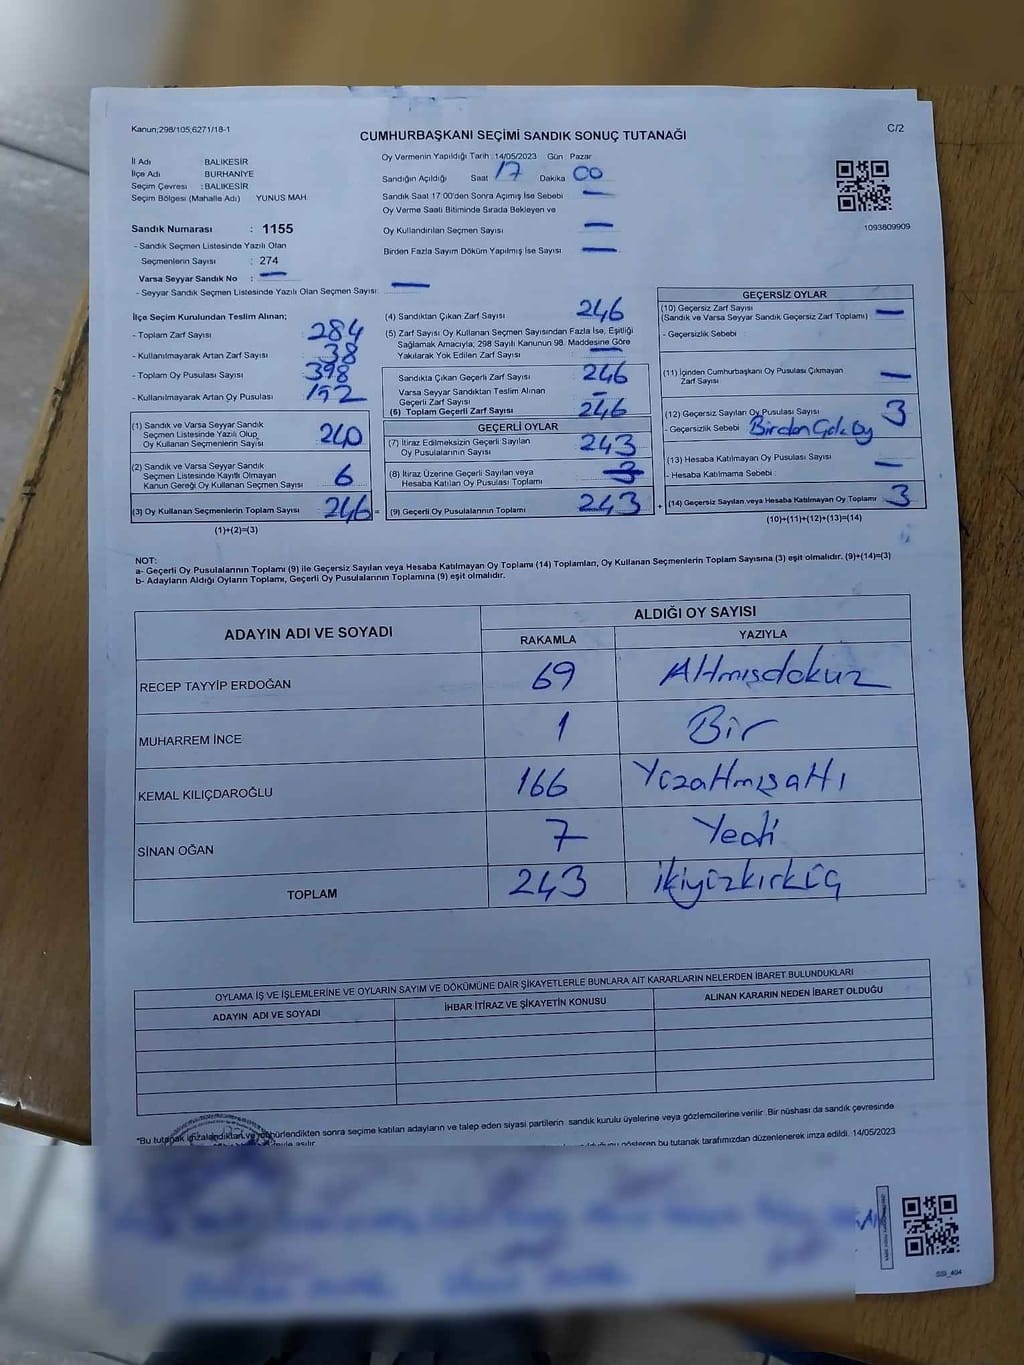 Kanun;298/105;6271/18-1
C/2
CUMHURBAŞKANI SEÇİMİ SANDIK SONUÇ TUTANAĞI
İl Adı BALIKESİR
İlçe Adı BURHANİYE
Seçim Çevresi : BALIKESİR
Seçim Bölgesi (Mahalle Adı) YUNUS MAH.
Oy Vermenin Yapıldığı Tarih : 14/05/2023 Gün : Pazar
Sandığın Açıldığı Saat 17 Dakika 00
Sandık Saat 17:00'den Sonra Açımış İse Sebebi —
Oy Verme Saati Bitiminde Sırada Bekleyen ve
Oy Kullandırılan Seçmen Sayısı —
Birden Fazla Sayım Döküm Yapılmış İse Sayısı —
1093809909
Sandık Numarası : 1155
- Sandık Seçmen Listesinde Yazılı Olan
Seçmenlerin Sayısı : 274
Varsa Seyyar Sandık No : —
- Seyyar Sandık Seçmen Listesinde Yazılı Olan Seçmen Sayısı: —
İlçe Seçim Kurulundan Teslim Alınan;
- Toplam Zarf Sayısı 284
- Kullanılmayarak Artan Zarf Sayısı 38
- Toplam Oy Pusulası Sayısı 398
- Kullanılmayarak Artan Oy Pusulası 152
(1) Sandık ve Varsa Seyyar Sandık
Seçmen Listesinde Yazılı Olup
Oy Kullanan Seçmenlerin Sayısı 240
(2) Sandık ve Varsa Seyyar Sandık
Seçmen Listesinde Kayıtlı Olmayan
Kanun Gereği Oy Kullanan Seçmen Sayısı 6
(3) Oy Kullanan Seçmenlerin Toplam Sayısı 246 =
(1)+(2)=(3)
(4) Sandıktan Çıkan Zarf Sayısı 246
(5) Zarf Sayısı Oy Kullanan Seçmen Sayısından Fazla İse, Eşitliği
Sağlamak Amacıyla; 298 Sayılı Kanunun 98. Maddesine Göre
Yakılarak Yok Edilen Zarf Sayısı : —
Sandıkta Çıkan Geçerli Zarf Sayısı 246
Varsa Seyyar Sandıktan Teslim Alınan
Geçerli Zarf Sayısı —
(6) Toplam Geçerli Zarf Sayısı 246
GEÇERLİ OYLAR
(7) İtiraz Edilmeksizin Geçerli Sayılan
Oy Pusulalarının Sayısı 243
(8) İtiraz Üzerine Geçerli Sayılan veya
Hesaba Katılan Oy Pusulası Toplamı
(9) Geçerli Oy Pusulalarının Toplamı 243 +
GEÇERSİZ OYLAR
(10) Geçersiz Zarf Sayısı
(Sandık ve Varsa Seyyar Sandık Geçersiz Zarf Toplamı) —
- Geçersizlik Sebebi :
(11) İçinden Cumhurbaşkanı Oy Pusulası Çıkmayan
Zarf Sayısı —
(12) Geçersiz Sayılan Oy Pusulası Sayısı 3
- Geçersizlik Sebebi Birden Çok Oy
(13) Hesaba Katılmayan Oy Pusulası Sayısı —
- Hesaba Katılmama Sebebi :
(14) Geçersiz Sayılan veya Hesaba Katılmayan Oy Toplamı 3
(10)+(11)+(12)+(13)=(14)
NOT:
a- Geçerli Oy Pusulalarının Toplamı (9) ile Geçersiz Sayılan veya Hesaba Katılmayan Oy Toplamı (14) Toplamları, Oy Kullanan Seçmenlerin Toplam Sayısına (3) eşit olmalıdır. (9)+(14)=(3)
b- Adayların Aldığı Oyların Toplamı, Geçerli Oy Pusulalarının Toplamına (9) eşit olmalıdır.
ADAYIN ADI VE SOYADI ALDIĞI OY SAYISI
RAKAMLA YAZIYLA
RECEP TAYYİP ERDOĞAN 69 Altmışdokuz
MUHARREM İNCE 1 Bir
KEMAL KILIÇDAROĞLU 166 Yüzaltmışaltı
SİNAN OĞAN 7 Yedi
TOPLAM 243 ikiyüzkırküç
OYLAMA İŞ VE İŞLEMLERİNE VE OYLARIN SAYIM VE DÖKÜMÜNE DAİR ŞİKAYETLERLE BUNLARA AİT KARARLARIN NELERDEN İBARET BULUNDUKLARI
ADAYIN ADI VE SOYADI İHBAR İTİRAZ VE ŞİKAYETİN KONUSU ALINAN KARARIN NEDEN İBARET OLDUĞU
"Bu tutanak imzalandıktan ve mühürlendikten sonra seçime katılan adayların ve talep eden siyasi partilerin sandık kurulu üyelerine veya gözlemcilerine verilir. Bir nüshası da sandık çevresinde
asılır. gösteren bu tutanak tarafımızdan düzenlenerek imza edildi. 14/05/2023